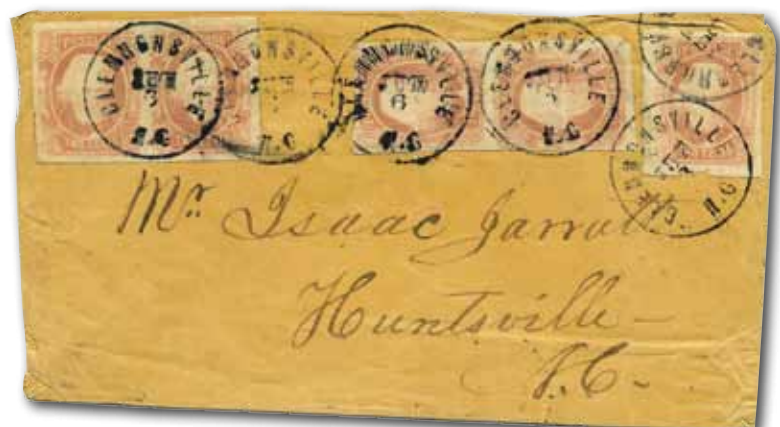 CLEMMONSVILLE
N.C
CLEMMONSVILLE
N.C
CLEMMONSVILLE
N.C
CLEMMONSVILLE
N.C
CLEMMONSVILLE
N.C
Mr Isaac Jarratt
Huntsville
N.C.